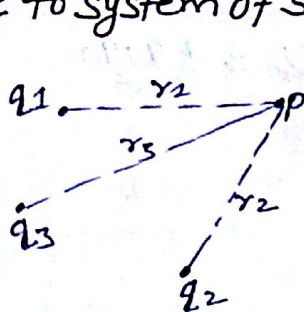 to system of s
q1 r1 p
r3
r2
q3
q2